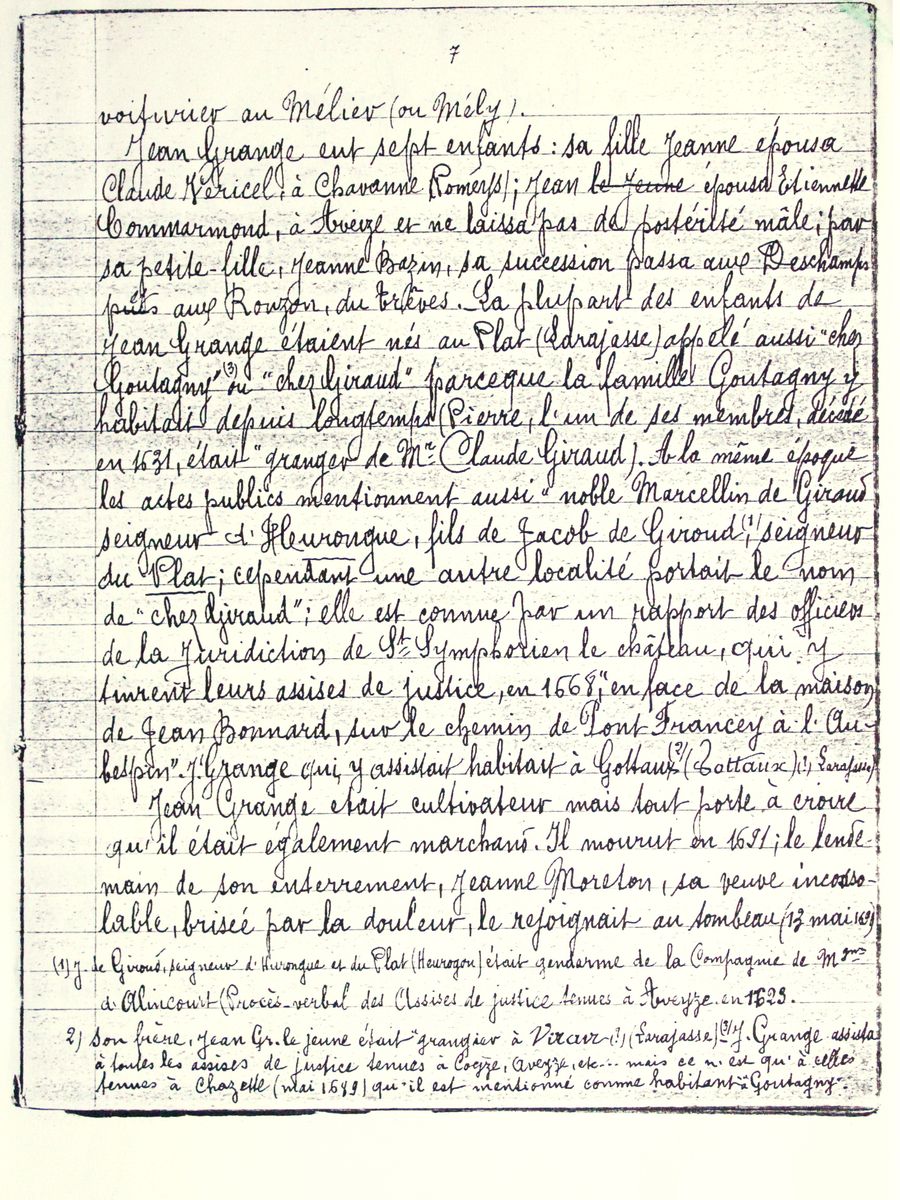 7
voiturier au Mélier (ou Mély).
Jean Grange eut sept enfants : sa fille Jeanne épousa
Claude Véricel, à Chavanne Roméys) ; Jean le Jeune épousa Etiennette
Commarmond, à Aveize et ne laissa pas de postérité mâle ; par
sa petite-fille, Jeanne Bazin, sa succession passa aux Deschamps
puis aux Rouzon, du Trêves. La plupart des enfants de
Jean Grange étaient nés au Plat (Larajasse) appelé aussi "chez
Goutagny" (3) ou "chez Giraud" parceque la famille Goutagny y
habitait depuis longtemps (Pierre, l'un de ses membres, décédé
en 1631, était "granger de Mre Claude Giraud). A la même époque
les actes publics mentionnent aussi "noble Marcellin de Giraud
seigneur d'Heurongue, fils de Jacob de Giroud, (1) seigneur
du Plat ; cependant une autre localité portait le nom
de "chez Giraud" ; elle est connue par un rapport des officiers
de la Juridiction de St Symphorien le château, qui y
tinrent leurs assises de justice, en 1668, "en face de la maison
de Jean Bonnard, sur le chemin de Pont Francey à l'Au-
bespin". J. Grange qui y assistait habitait à Gottaux (2) (Tottaux) (?) Larajasse)
Jean Grange etait cultivateur mais tout porte à croire
qu'il était également marchand. Il mourut en 1691 ; le lende-
main de son enterrement, Jeanne Moreton, sa veuve inconso-
lable, brisée par la douleur, le rejoignait au tombeau (13 mai 1691)
(1) J. de Giroud, seigneur d'Hurongue et du Plat (Heurogon) était gendarme de la Compagnie de Mgnr
d'Alincourt (Procès-verbal des Assises de justice tenues à Aveyze en 1623.
2) Son frère, Jean Gr. le jeune était "grangier à (?) (Larajasse) (3) J. Grange assista
à toutes les assises de justice tenues à Coyze, Aveyze, etc... mais ce n'est qu'à celles
tenues à Chazelle (mai 1689) qu'il est mentionné comme habitant "Goutagny".